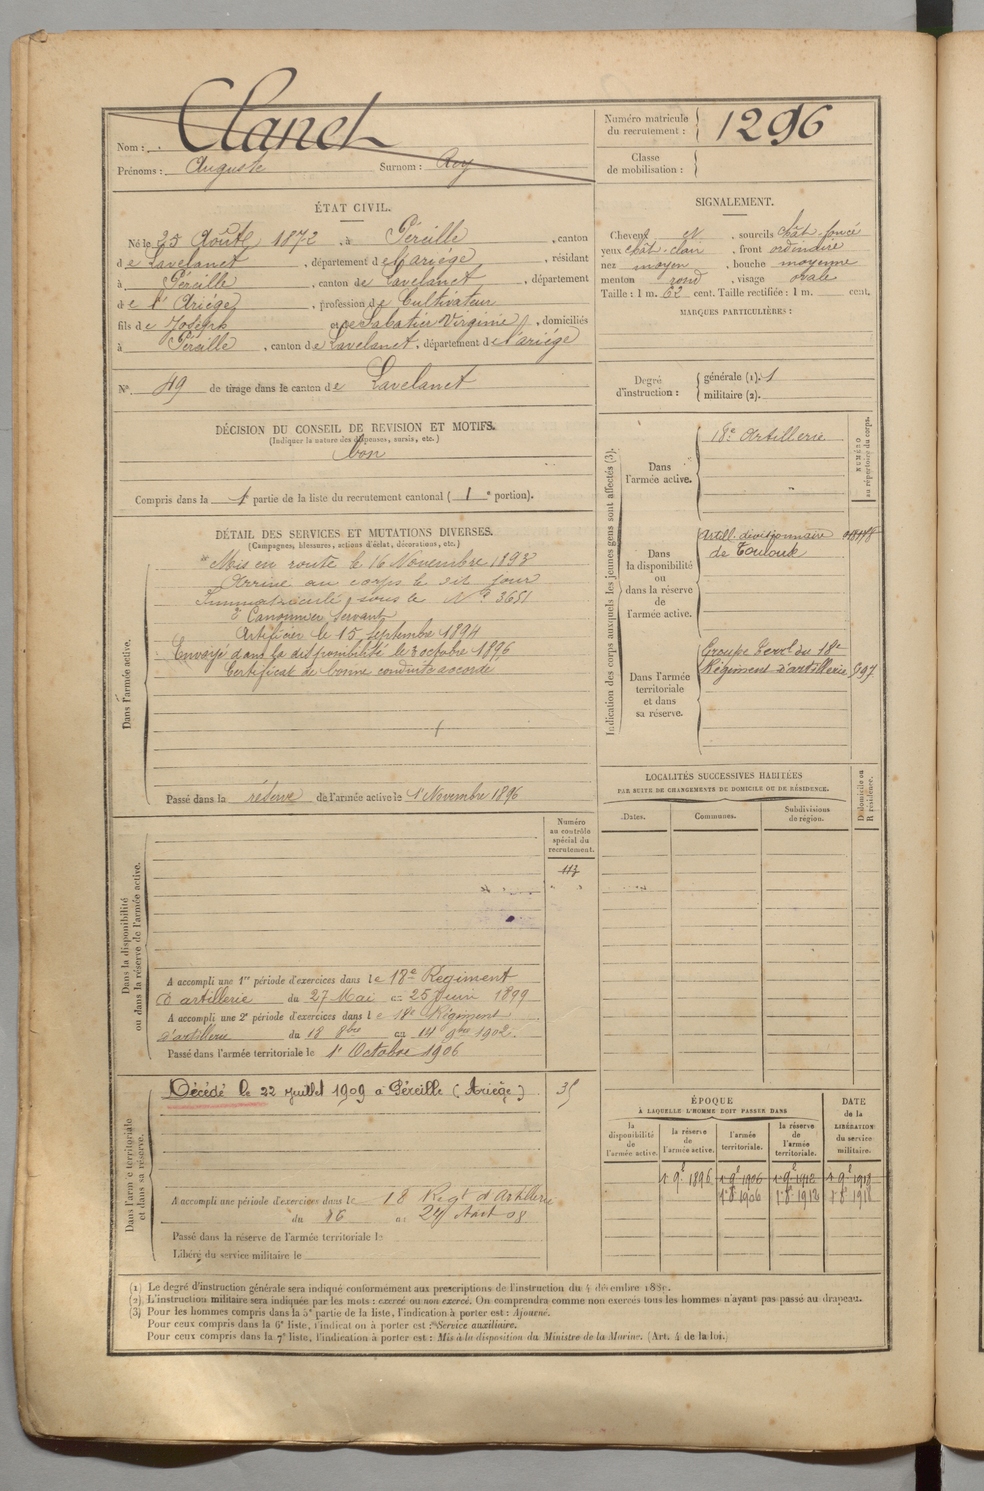 Nom : Clanet
Prénoms : Auguste Surnom :
Numéro matricule
du recrutement : 1296
Classe
de mobilisation :
ÉTAT CIVIL.
Né le 25 Août 1872, à Péreille, canton
de Lavelanet, département de l'ariége, résidant
à Péreille, canton de Lavelanet, département
de l'Ariége, profession de Cultivateur
fils de Joseph et de Sabatier Virginie, domiciliés
à Péreille, canton de Lavelanet, département de l'ariége
N° 49 de tirage dans le canton de Lavelanet
SIGNALEMENT.
Cheveux N, sourcils chât-foncé
yeux chât-clair, front ordinaire
nez moyen, bouche moyenne
menton rond, visage ovale
Taille : 1 m. 62 cent. Taille rectifiée : 1 m. cent.
MARQUES PARTICULIÈRES :
Degré
d'instruction :
générale (1). 1
militaire (2).
DÉCISION DU CONSEIL DE REVISION ET MOTIFS.
(Indiquer la nature des dispenses, sursis, etc.)
bon
Compris dans la 1e partie de la liste du recrutement cantonal ( 1 e portion).
DÉTAIL DES SERVICES ET MUTATIONS DIVERSES.
(Campagnes, blessures, actions d'éclat, décorations, etc.)
Dans l'armée active.
Mis en route le 16 Novembre 1893
Arrivé au corps le dit jour
Immatriculé sous le N° 3651
2e Canonnier servant
Artificier le 15 septembre 1894
Envoyé dans la disponibilité le 3 octobre 1896
Certificat de bonne conduite accordé
Passé dans la réserve de l'armée active le 1 Novembre 1896
Indication des corps auxquels les jeunes gens sont affectés (3).
NUMÉRO
au répertoire du corps.
Dans
l'armée active.
18e Artillerie
Dans
la disponibilité
ou
dans la réserve
de
l'armée active.
Artill. divisionnaire
de Toulouse
Dans l'armée
territoriale
et dans
sa réserve.
Groupe Terrl du 18e
Régiment d'artillerie 597
LOCALITÉS SUCCESSIVES HABITÉES
PAR SUITE DE CHANGEMENTS DE DOMICILE OU DE RÉSIDENCE.
Dates. Communes. Subdivisions
de région.
D domicile ou
R résidence.
Dans la disponibilité
ou dans la réserve de l'armée active.
Numéro
au contrôle
spécial du
recrutement.
113
A accompli une 1re période d'exercices dans le 18e Régiment
d'artillerie du 27 Mai au 25 Juin 1899
A accompli une 2e période d'exercices dans le 18e Régiment
d'artillerie du 18 8bre au 14 9bre 1902.
Passé dans l'armée territoriale le 1r Octobre 1906
Dans l'armée territoriale
et dans sa réserve.
Décédé le 22 juillet 1909 à Péreille (Ariège)
35
A accompli une période d'exercices dans le 18 Regt d'Artillerie
du 16 au 24 Aout 08
Passé dans la réserve de l'armée territoriale le
Libéré du service militaire le
ÉPOQUE
À LAQUELLE L'HOMME DOIT PASSER DANS
DATE
de la
LIBÉRATION
du service
militaire.
la
disponibilité
de
l'armée active.
la réserve
de
l'armée active.
l'armée
territoriale.
la réserve
de
l'armée
territoriale.
1 9e 1896 1 9e 1906 1 9e 1912 1 9e 1918
1 8e 1906 1 8e 1912 1 8e 1918
(1) Le degré d'instruction générale sera indiqué conformément aux prescriptions de l'instruction du 4 décembre 1889.
(2) L'instruction militaire sera indiquée par les mots : exercé ou non exercé. On comprendra comme non exercés tous les hommes n'ayant pas passé au drapeau.
(3) Pour les hommes compris dans la 5e partie de la liste, l'indication à porter est : Ajourné.
Pour ceux compris dans la 6e liste, l'indication à porter est : Service auxiliaire.
Pour ceux compris dans la 7e liste, l'indication à porter est : Mis à la disposition du Ministre de la Marine. (Art. 4 de la loi.)